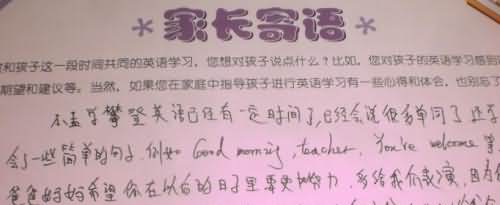 家长寄语
和孩子这一段时间共同的英语学习，您想对孩子说点什么？比如，您对孩子的英语学习感到
期望和建议等。当然，如果您在家庭中指导孩子进行英语学习有一些心得和体会，也别忘了
学攀登英语已经有一定时间了,已经会说很多单词了还学
会了一些简单的句子,例如 Good morning, teacher, You're welcome 等
爸爸妈妈希望你在以后的日子里要更加努力,多给我们表演,因为